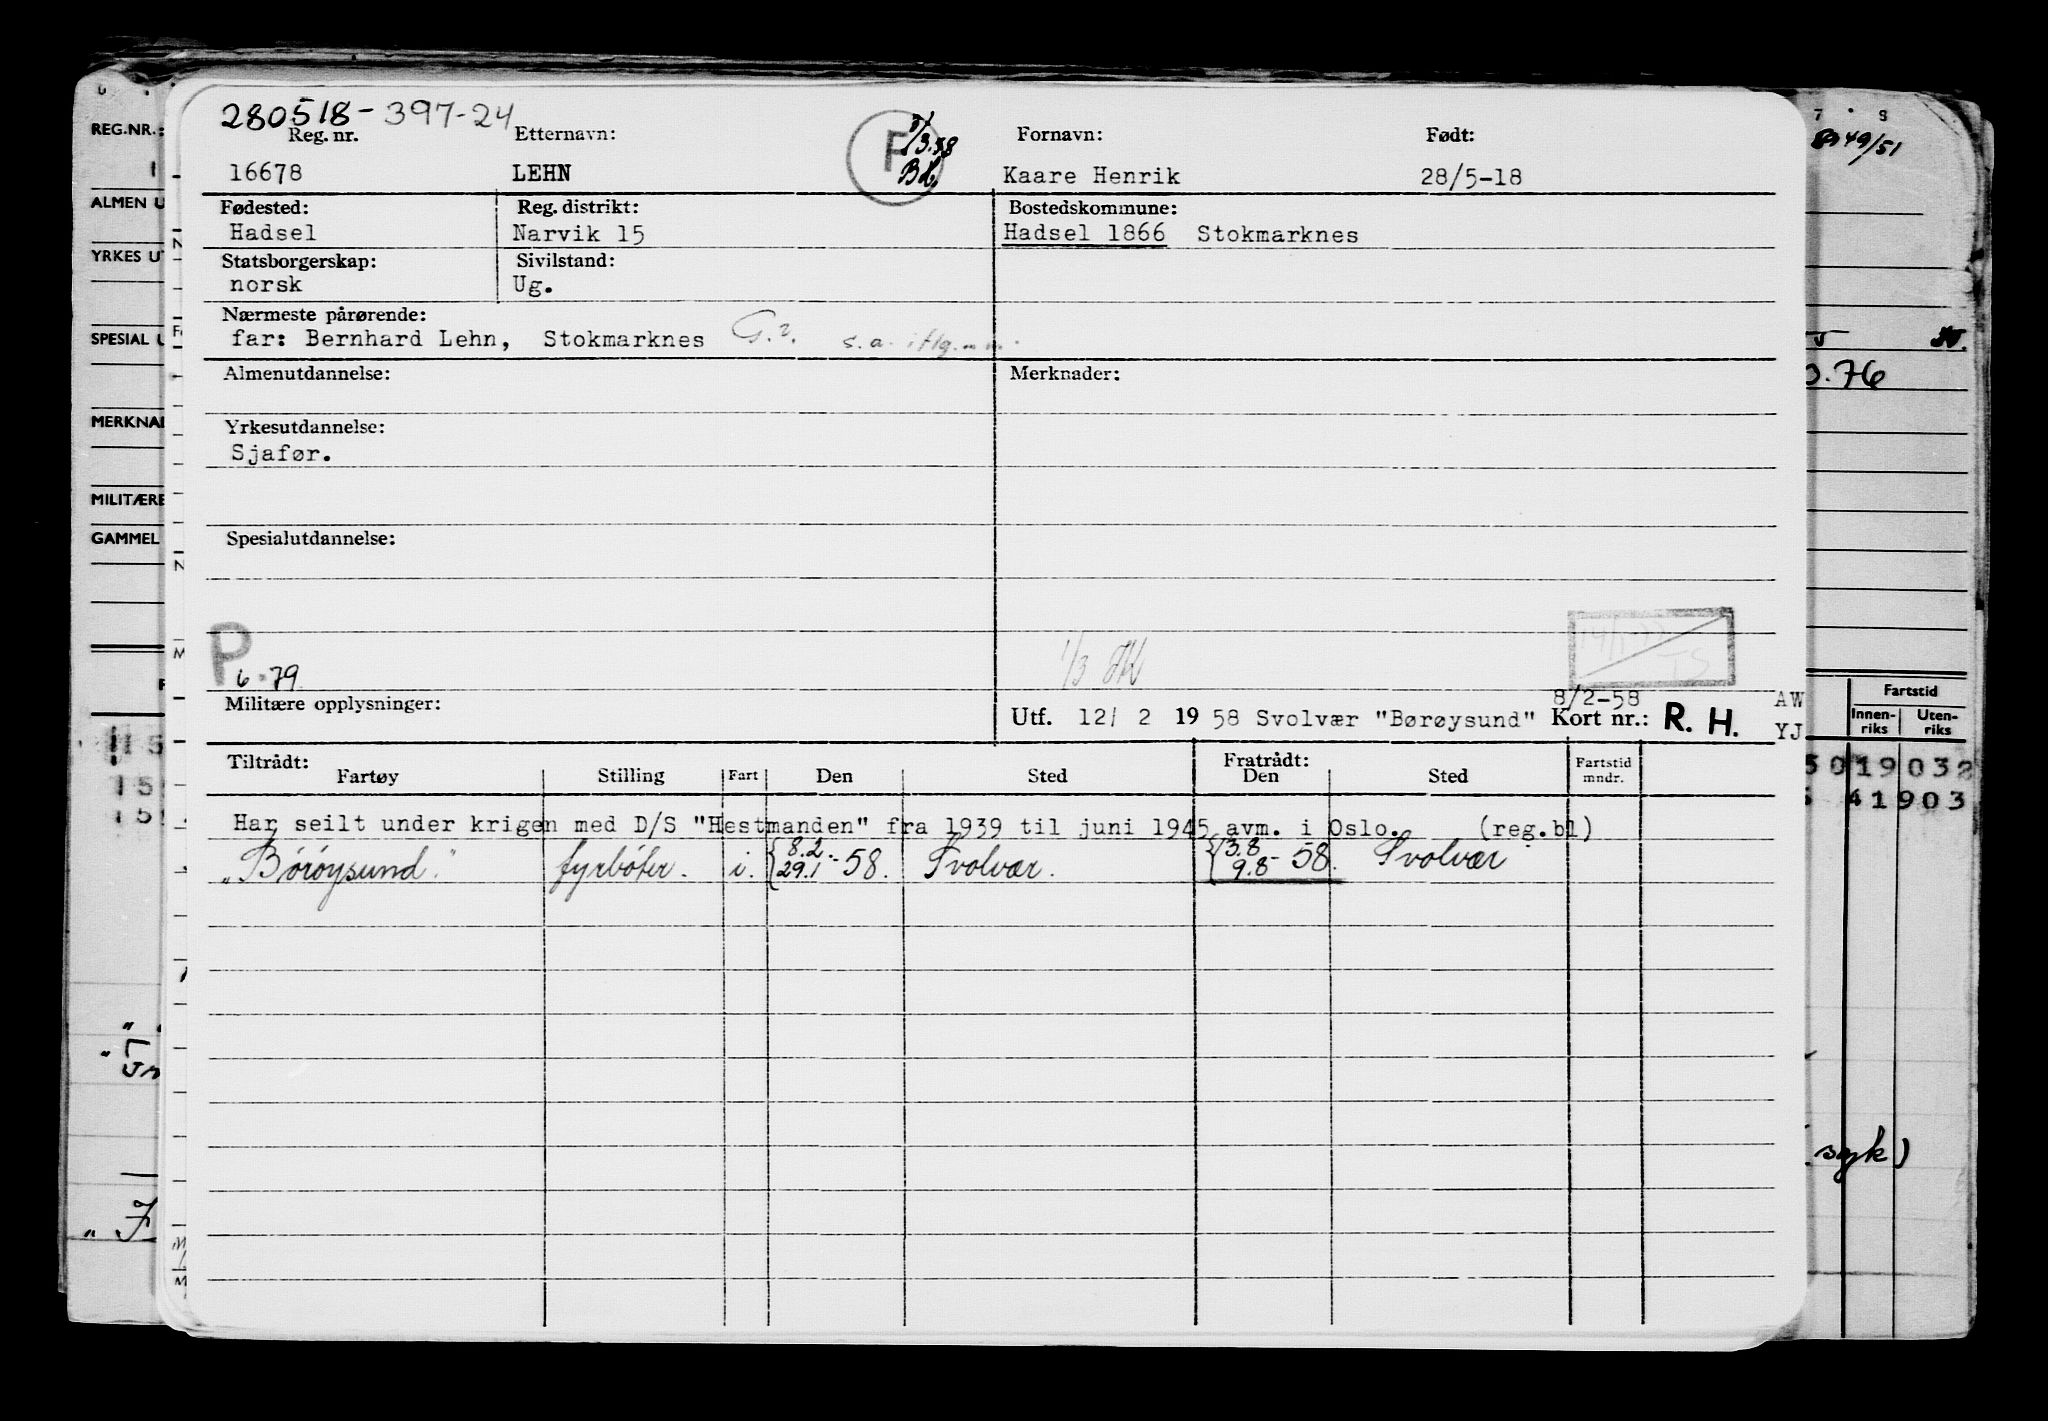 280518-397-24
Reg. nr. Etternavn: Fornavn: Født:
F 3.58
16678 LEHN Kaare Henrik 28/5-18
Fødested: Reg. distrikt: Bostedskommune:
Hadsel Narvik 15 Hadsel 1866 Stokmarknes
Statsborgerskap: Sivilstand:
norsk Ug.
Nærmeste pårørende:
far: Bernhard Lehn, Stokmarknes
Almenutdannelse: Merknader:
Yrkesutdannelse:
Sjafør.
Spesialutdannelse:
P
6.79
1/3
TS
8/2-58 AW
Militære opplysninger: Utf. 12/ 2 19 58 Svolvær "Børøysund" Kort nr.: R. H. YJ
Tiltrådt: Fratrådt:
Fartøy Stilling Fart Den Sted Den Sted Fartstid mndr.
Har seilt under krigen med D/S "Hestmanden" fra 1939 til juni 1945 avm. i Oslo. (reg.bl)
"Børøysund." fyrbøter. i. {8.2 29.1 -58. Svolvær. {3.8 9.8 -58. Svolvær
REG.NR.:
1
ALMEN U
YRKES UT
SPESIAL U
MERKNAD
MILITÆRE
GAMMEL
7 8
49/51
0.76
Fartstid
Innen-riks Uten-riks
5019032
41903
syk)